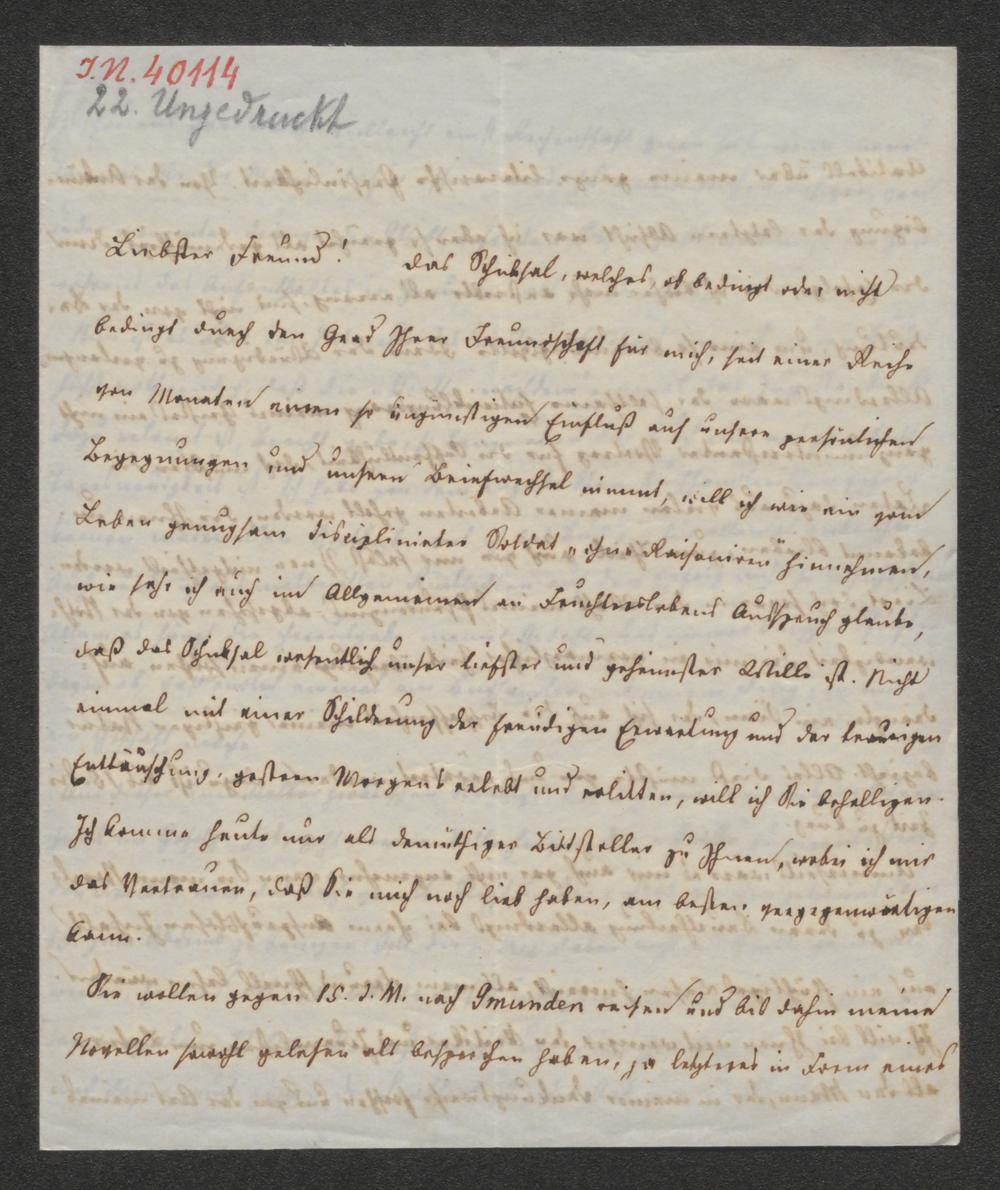 I.N. 40114
22. Ungedruckt
Liebster Freund! Das Schicksal, welches, ob bedingt oder nicht
bedingt durch den Grad Ihrer Freundschaft für mich, seit einer Reihe
von Monaten einen so ungünstigen Einfluß auf unsere persönlichen
Begegnungen und unsern Briefwechsel nimmt, will ich wie ein vom
Leben genugsam disciplinirter Soldat „ohne Raisoniren“ hinnehmen,
wie sehr ich auch im Allgemeinen an Feuchterslebens Ausspruch glaube,
daß das Schicksal wesentlich unser tiefster und geheimster Wille ist. Nicht
einmal mit einer Schilderung der freudigen Erwartung und der traurigen
Enttäuschung, gestern Morgens erlebt und erlitten, will ich Sie behelligen.
Ich komme heute nur als demüthiger Bittsteller zu Ihnen, wobei ich mir
das Vertrauen, daß Sie mich noch lieb haben, am besten vergegenwärtigen
kann.
Sie wollen gegen 15. d. M. nach Gmunden reisen und bis dahin meine
Novellen sowohl gelesen als besprochen haben, ja letzteres in Form eines